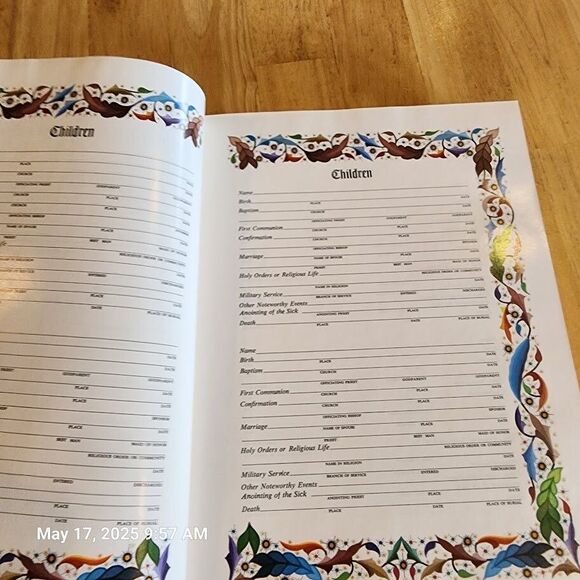 Children
PLACE DATE
CHURCH DATE
OFFICIATING PRIEST GODPARENT
CHURCH PLACE DATE
CHURCH PLACE DATE
OFFICIATING BISHOP SPONSOR
NAME OF SPOUSE PLACE DATE
BEST MAN MAID OF HONOR
Life
RELIGIOUS ORDER OR COMMUNITY
DATE
BRANCH OF SERVICE ENTERED DISCHARGED
PLACE DATE
PLACE PLACE OF BURIAL
DATE
DATE
GODPARENT
PLACE DATE
PLACE DATE
SPONSOR
PLACE DATE
BEST MAN MAID OF HONOR
RELIGIOUS ORDER OR COMMUNITY
DATE
ENTERED DISCHARGED
PLACE DATE
PLACE PLACE OF BURIAL
Children
Name
Birth PLACE DATE
Baptism CHURCH DATE
OFFICIATING PRIEST GODPARENT GODPARENT
First Communion CHURCH PLACE DATE
Confirmation CHURCH PLACE DATE
OFFICIATING BISHOP SPONSOR
Marriage NAME OF SPOUSE PLACE DATE
PRIEST BEST MAN MAID OF HONOR
Holy Orders or Religious Life RELIGIOUS ORDER OR COMMUNITY
NAME IN RELIGION DATE
Military Service BRANCH OF SERVICE ENTERED DISCHARGED
Other Noteworthy Events
Anointing of the Sick ANOINTING PRIEST PLACE DATE
Death DATE PLACE PLACE OF BURIAL
Name
Birth PLACE DATE
Baptism CHURCH DATE
OFFICIATING PRIEST GODPARENT GODPARENT
First Communion CHURCH PLACE DATE
Confirmation CHURCH PLACE DATE
OFFICIATING BISHOP SPONSOR
Marriage NAME OF SPOUSE PLACE DATE
PRIEST BEST MAN MAID OF HONOR
Holy Orders or Religious Life RELIGIOUS ORDER OR COMMUNITY
NAME IN RELIGION DATE
Military Service BRANCH OF SERVICE ENTERED DISCHARGED
Other Noteworthy Events
Anointing of the Sick ANOINTING PRIEST PLACE DATE
Death DATE PLACE PLACE OF BURIAL
May 17, 2025 9:57 AM